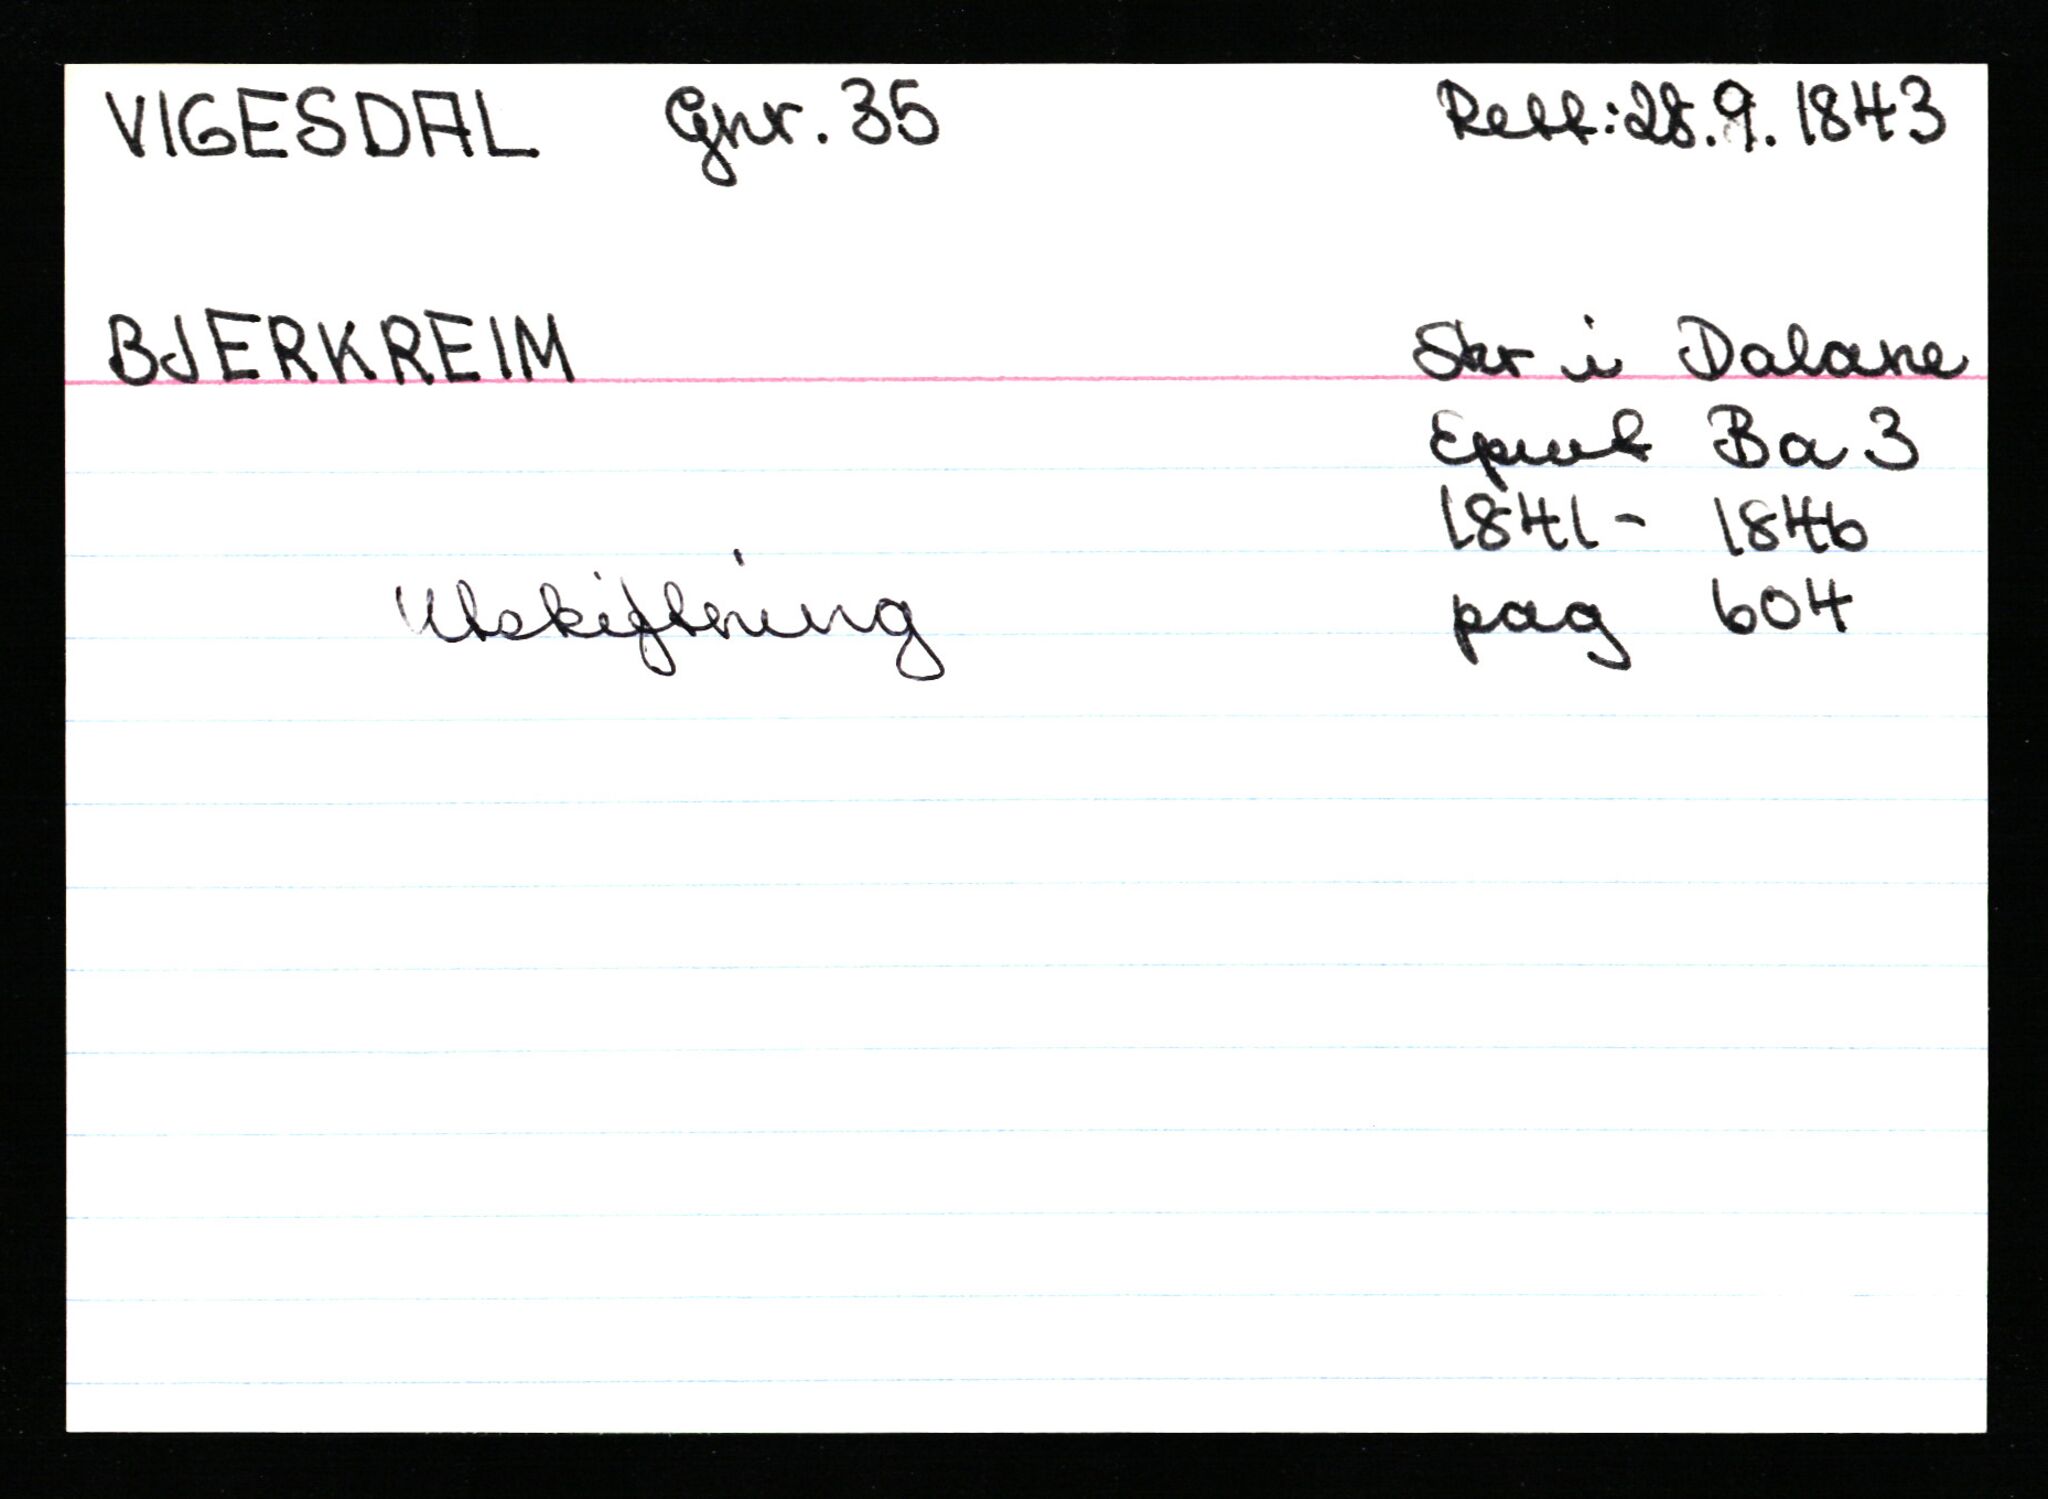 VIGESDAL Gnr. 35 Rett: 28.9.1843
BJERKREIM Skr i Dalane
Epult Ba 3
1841 - 1846
Utskiftning pag 604